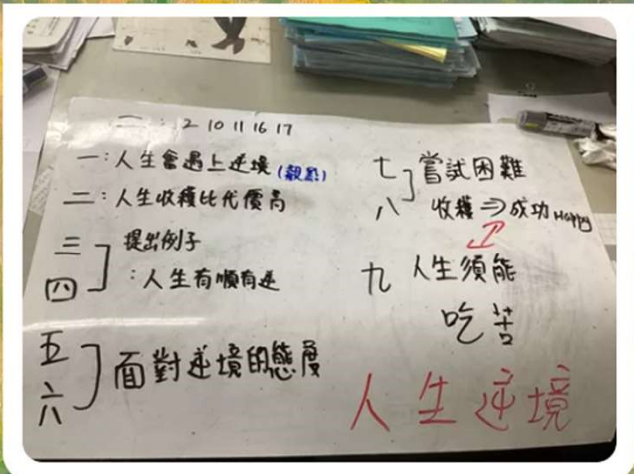 二: 2 10 11 16 17
一:人生會遇上逆境 (親點)
二:人生收穫比代價高
三
四
提出例子
:人生有順有逆
五
六
面對逆境的態度
七
八
嘗試困難
收穫⇒成功 Happy
九 人生須能
吃苦
人生逆境